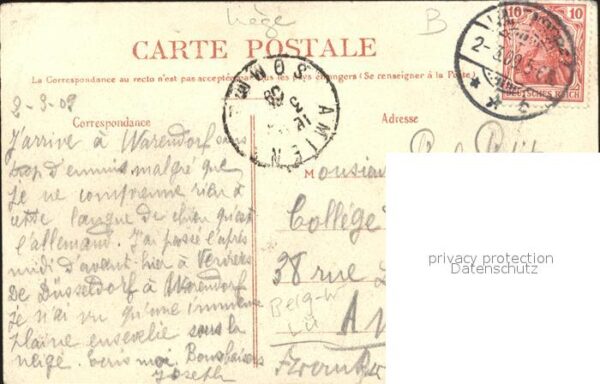 Liège
B
10 10
DEUTSCHES REICH
2-3.09.5-6
* * c
CARTE POSTALE
La Correspondance au recto n'est pas acceptée par tous les pays étrangers (Se renseigner à la Poste.)
SOMME
AMIENS
2-3-09
Correspondance
Adresse
J'arrive à Warendorf sans
trop d'ennuis malgré que
je ne comprenne rien à
cette langue de chien qu'est
l'allemand. J'ai passé l'après
midi d'avant-hier à Verviers
De Düsseldorf à Warendorf
je n'ai vu qu'une immense
plaine ensevelie sous la
neige. Ecris moi. Bons baisers
Joseph
Monsieur
Collége
38 rue
A
Belg-W
Lü
privacy protection
Datenschutz